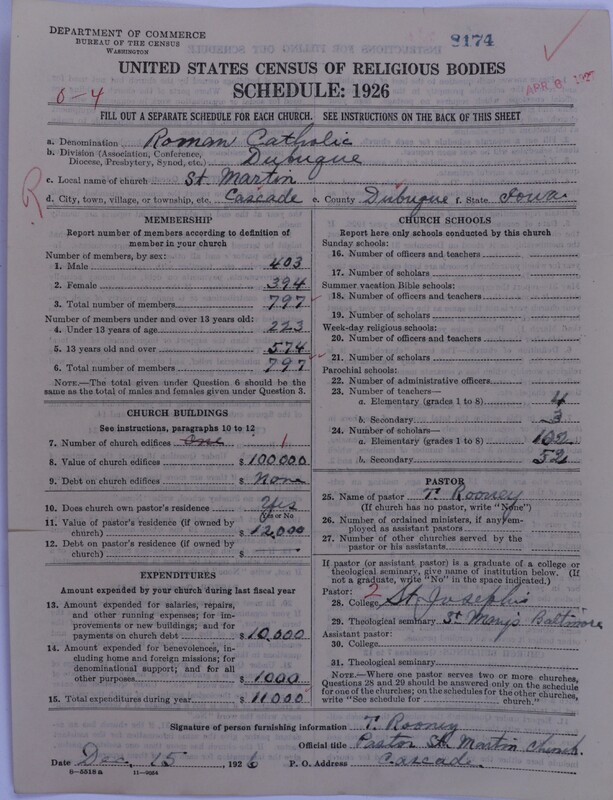 DEPARTMENT OF COMMERCE
BUREAU OF THE CENSUS
WASHINGTON
8174
APR 8
UNITED STATES CENSUS OF RELIGIOUS BODIES
SCHEDULE: 1926
0-4
FILL OUT A SEPARATE SCHEDULE FOR EACH CHURCH. SEE INSTRUCTIONS ON THE BACK OF THIS SHEET
a. Denomination Roman Catholic
b. Division (Association, Conference, Diocese, Presbytery, Synod, etc.) Dubuque
c. Local name of church St. Martin
R
d. City, town, village, or township, etc. Cascade e. County Dubuque f. State Iowa
MEMBERSHIP
Report number of members according to definition of member in your church
Number of members, by sex:
1. Male 403
2. Female 394
3. Total number of members 797
Number of members under and over 13 years old:
4. Under 13 years of age 223
5. 13 years old and over 574
6. Total number of members 797
NOTE.—The total given under Question 6 should be the same as the total of males and females given under Question 3.
CHURCH BUILDINGS
See instructions, paragraphs 10 to 12
7. Number of church edifices One 1
8. Value of church edifices $ 100000
9. Debt on church edifices $ None
10. Does church own pastor's residence? Yes
Yes or No
11. Value of pastor's residence (if owned by church) $ 12,000
12. Debt on pastor's residence (if owned by church) $
EXPENDITURES
Amount expended by your church during last fiscal year
13. Amount expended for salaries, repairs, and other running expenses; for improvements or new buildings; and for payments on church debt $ 10,000
14. Amount expended for benevolences, including home and foreign missions; for denominational support; and for all other purposes $ 1000
15. Total expenditures during year $ 11,000
CHURCH SCHOOLS
Report here only schools conducted by this church
Sunday schools:
16. Number of officers and teachers
17. Number of scholars
Summer vacation Bible schools:
18. Number of officers and teachers
19. Number of scholars
Week-day religious schools:
20. Number of officers and teachers
21. Number of scholars
Parochial schools:
22. Number of administrative officers
23. Number of teachers—
a. Elementary (grades 1 to 8) 4
b. Secondary 3
24. Number of scholars—
a. Elementary (grades 1 to 8)
b. Secondary 52
PASTOR
25. Name of pastor T. Rooney
(If church has no pastor, write "None")
26. Number of ordained ministers, if any, employed as assistant pastors
27. Number of other churches served by the pastor or his assistants
If pastor (or assistant pastor) is a graduate of a college or theological seminary, give name of institution below. (If not a graduate, write "No" in the space indicated.)
Pastor: 2
28. College St. Joseph's
29. Theological seminary St Mary's Baltimore
Assistant pastor:
30. College
31. Theological seminary
NOTE.—Where one pastor serves two or more churches, Questions 28 and 29 should be answered only on the schedule for one of the churches; on the schedules for the other churches, write "See schedule for church."
Signature of person furnishing information T. Rooney
Official title Pastor St Martin Church
Date Dec. 15 1926 P. O. Address Cascade
8—5518a 11—9924